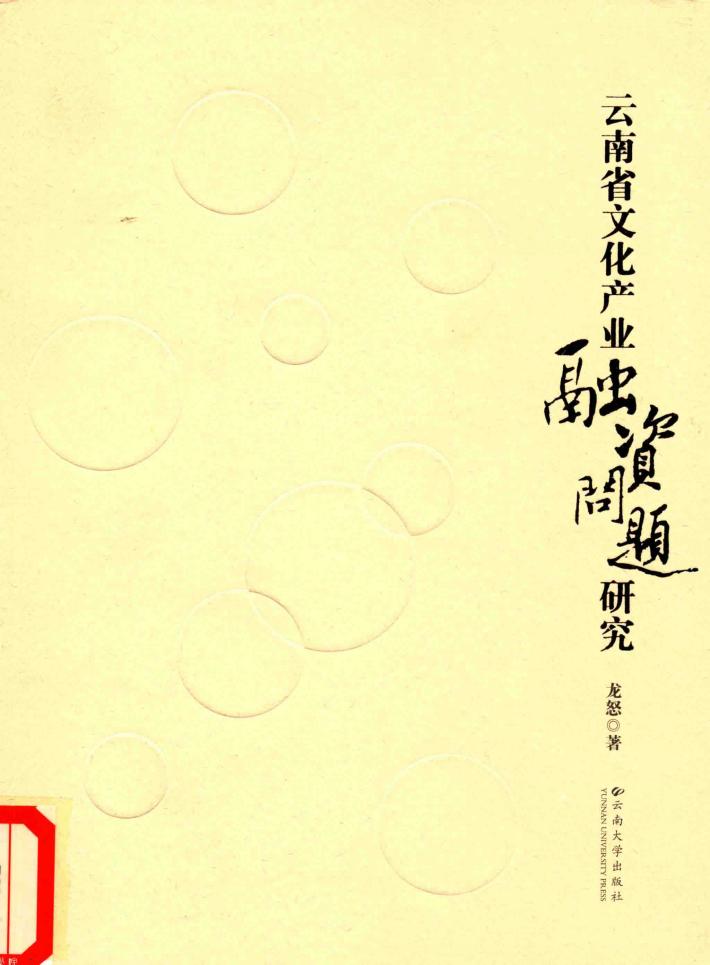 云南省文化产业
融資問題
研究
龙怒◎著
云南大学出版社
YUNNAN UNIVERSITY PRESS